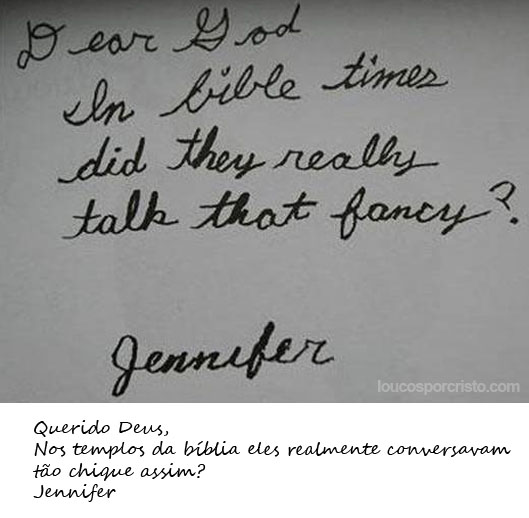 Dear God
In bible times
did they really
talk that fancy?
Jennifer
loucosporcristo.com
Querido Deus,
Nos templos da bíblia eles realmente conversavam
tão chique assim?
Jennifer